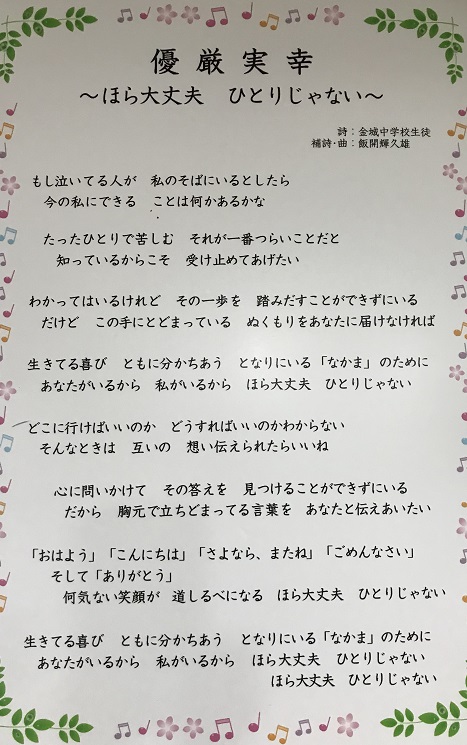 優厳実幸
～ほら大丈夫　ひとりじゃない～
詩：金城中学校生徒
補詩・曲：飯開輝久雄
もし泣いてる人が　私のそばにいるとしたら
今の私にできる　ことは何かあるかな
たったひとりで苦しむ　それが一番つらいことだと
知っているからこそ　受け止めてあげたい
わかってはいるけれど　その一歩を　踏みだすことができずにいる
だけど　この手にとどまっている　ぬくもりをあなたに届けなければ
生きてる喜び　ともに分かちあう　となりにいる「なかま」のために
あなたがいるから　私がいるから　ほら大丈夫　ひとりじゃない
どこに行けばいいのか　どうすればいいのかわからない
そんなときは　互いの　想い伝えられたらいいね
心に問いかけて　その答えを　見つけることができずにいる
だから　胸元で立ちどまってる言葉を　あなたと伝えあいたい
「おはよう」「こんにちは」「さよなら、またね」「ごめんなさい」
そして「ありがとう」
何気ない笑顔が　道しるべになる　ほら大丈夫　ひとりじゃない
生きてる喜び　ともに分かちあう　となりにいる「なかま」のために
あなたがいるから　私がいるから　ほら大丈夫　ひとりじゃない
ほら大丈夫　ひとりじゃない